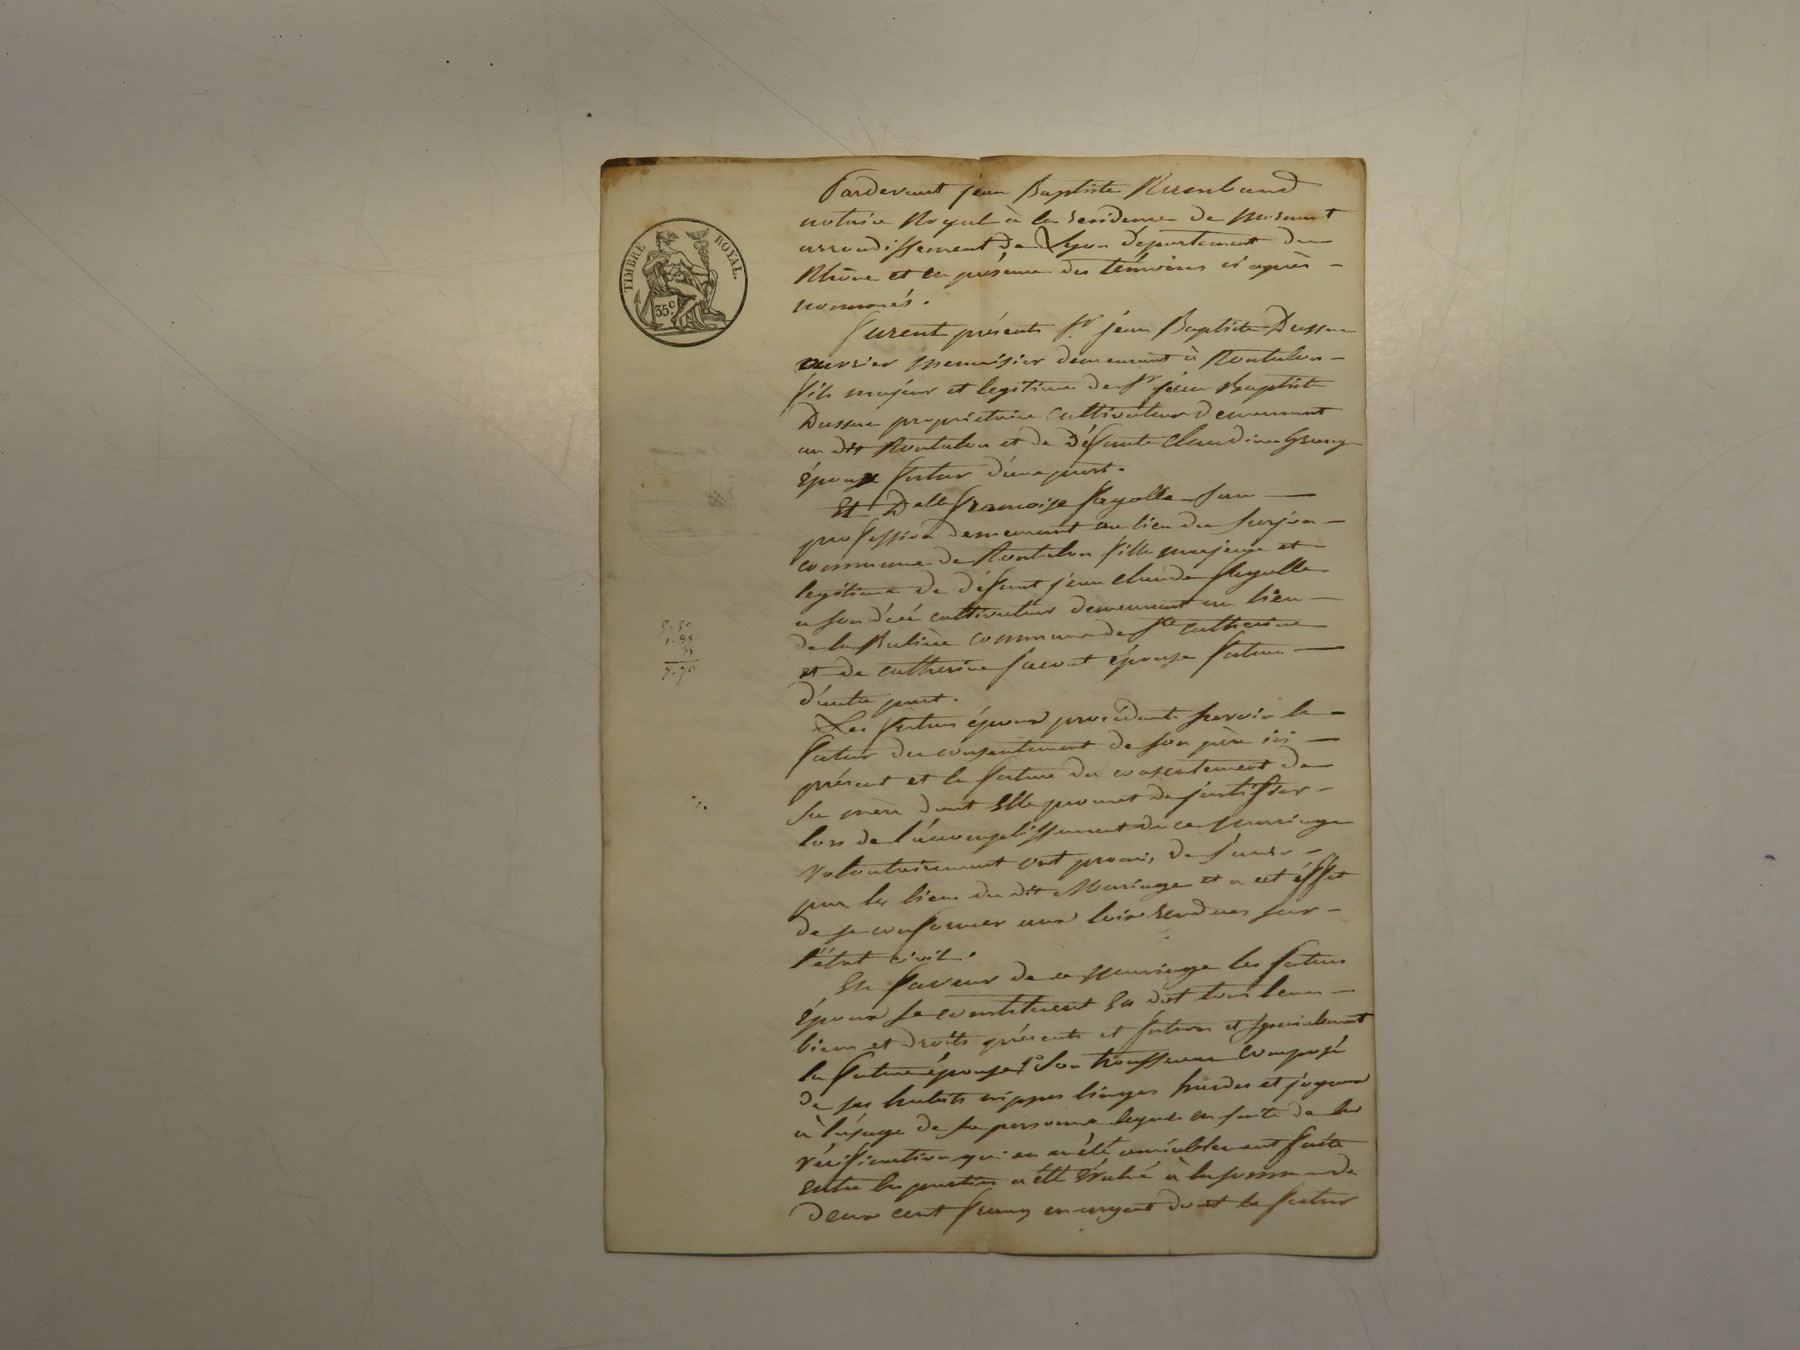 TIMBRE ROYAL.
35 c.
Pardevant jean Baptiste
notaire Royal à la residence de Mornant
arrondissement de Lyon département du
Rhône et en présence des témoins ci après
nommés.
furent présents Sr jean Baptiste Dussuc
ouvrier menuisier demeurant à Rontalon
fils majeur et legitime de Sr jean Baptiste
Dussuc propriétaire cultivateur demeurant
au dit Rontalon et de défunte Claudine
époux futur d'une part.
Et Delle françoise fayolle san
profession demeurant au lieu du
commune de Rontalon fille majeure et
legitime de défunt jean claude fayolle
a son décé cultivateur demeurant au lieu
de la commune de Ste catherine
et de catherine épouse future
d'autre part.
Les futurs époux procédants savoir le
futur du consentement de son père ici
présent et la future du consentement de
sa mère dont Elle promet de justiffier
lors de l'accomplissement de ce mariage
volontairement ont promis de s'unir
par les liens du dit Mariage et a cet éffet
de se conformer aux loix rendues sur
l'état civil.
En faveur de ce Mariage les futurs
époux se constituent En dot tous leurs
biens et droits présents et futurs et specialement
la future épouse 1° Son trousseau composé
de ses habits nippes linges hardes et joyaux
à l'usage de sa personne lequel en suite de la
vérification qui en a été amiablement faite
entre les parties a été évalué à la somme de
deux cent francs en argent du et le futur
5.50
1.85
35
7.70